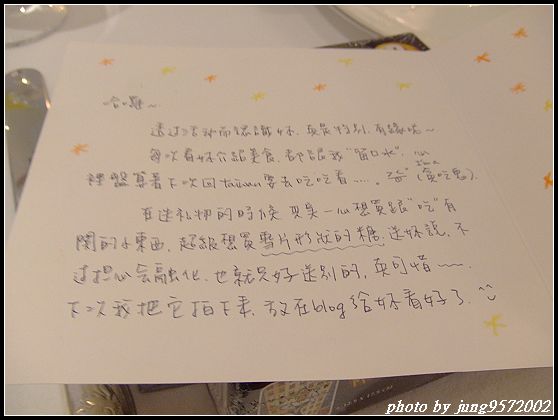 哈囉~
透過活動而認識妳,真是特別,有緣呢~
每次看妳介紹美食,都讓我"留口水",心
裡盤算著下次回Taiwan要去吃吃看.....。(貪吃鬼)
在送禮物的時候 真是一心想買跟"吃"有
關的小東西,超級想買雪片形狀的糖送妳說,不
過担心会融化,也就只好送別的,真可惜~~~
下次我把它拍下來,放在blog給妳看好了.^^
photo by jung9572002